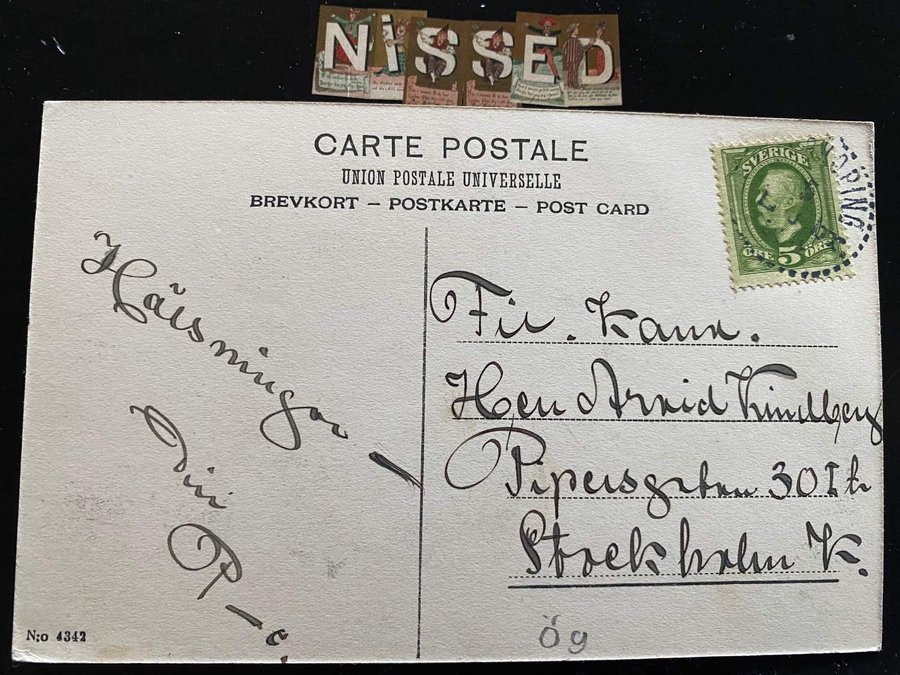 NISSED
CARTE POSTALE
UNION POSTALE UNIVERSELLE
BREVKORT – POSTKARTE – POST CARD
SVERIGE
ÖRE 5 ÖRE
KÖPING
Hälsningar
Din R
Fil. Kand.
Herr Arvid Kindberg
Pipersgatan 30 I tr
Stockholm K.
N:o 4342
ög